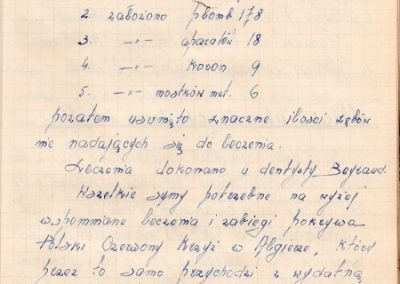 2. założono plomb 178
3. -"- aparatów 18
4. -"- koron 9
5. -"- mostków met. 6
pozatem usunięto znaczne ilości zębów
nie nadających się do leczenia.
Leczenia dokonano u dentysty
Wszelkie sumy potrzebne na wyżej
wspomniane leczenia i zabiegi pokrywa
Polski Czerwony Krzyż w Algierze, który
przez to samo przychodzi z wydatną